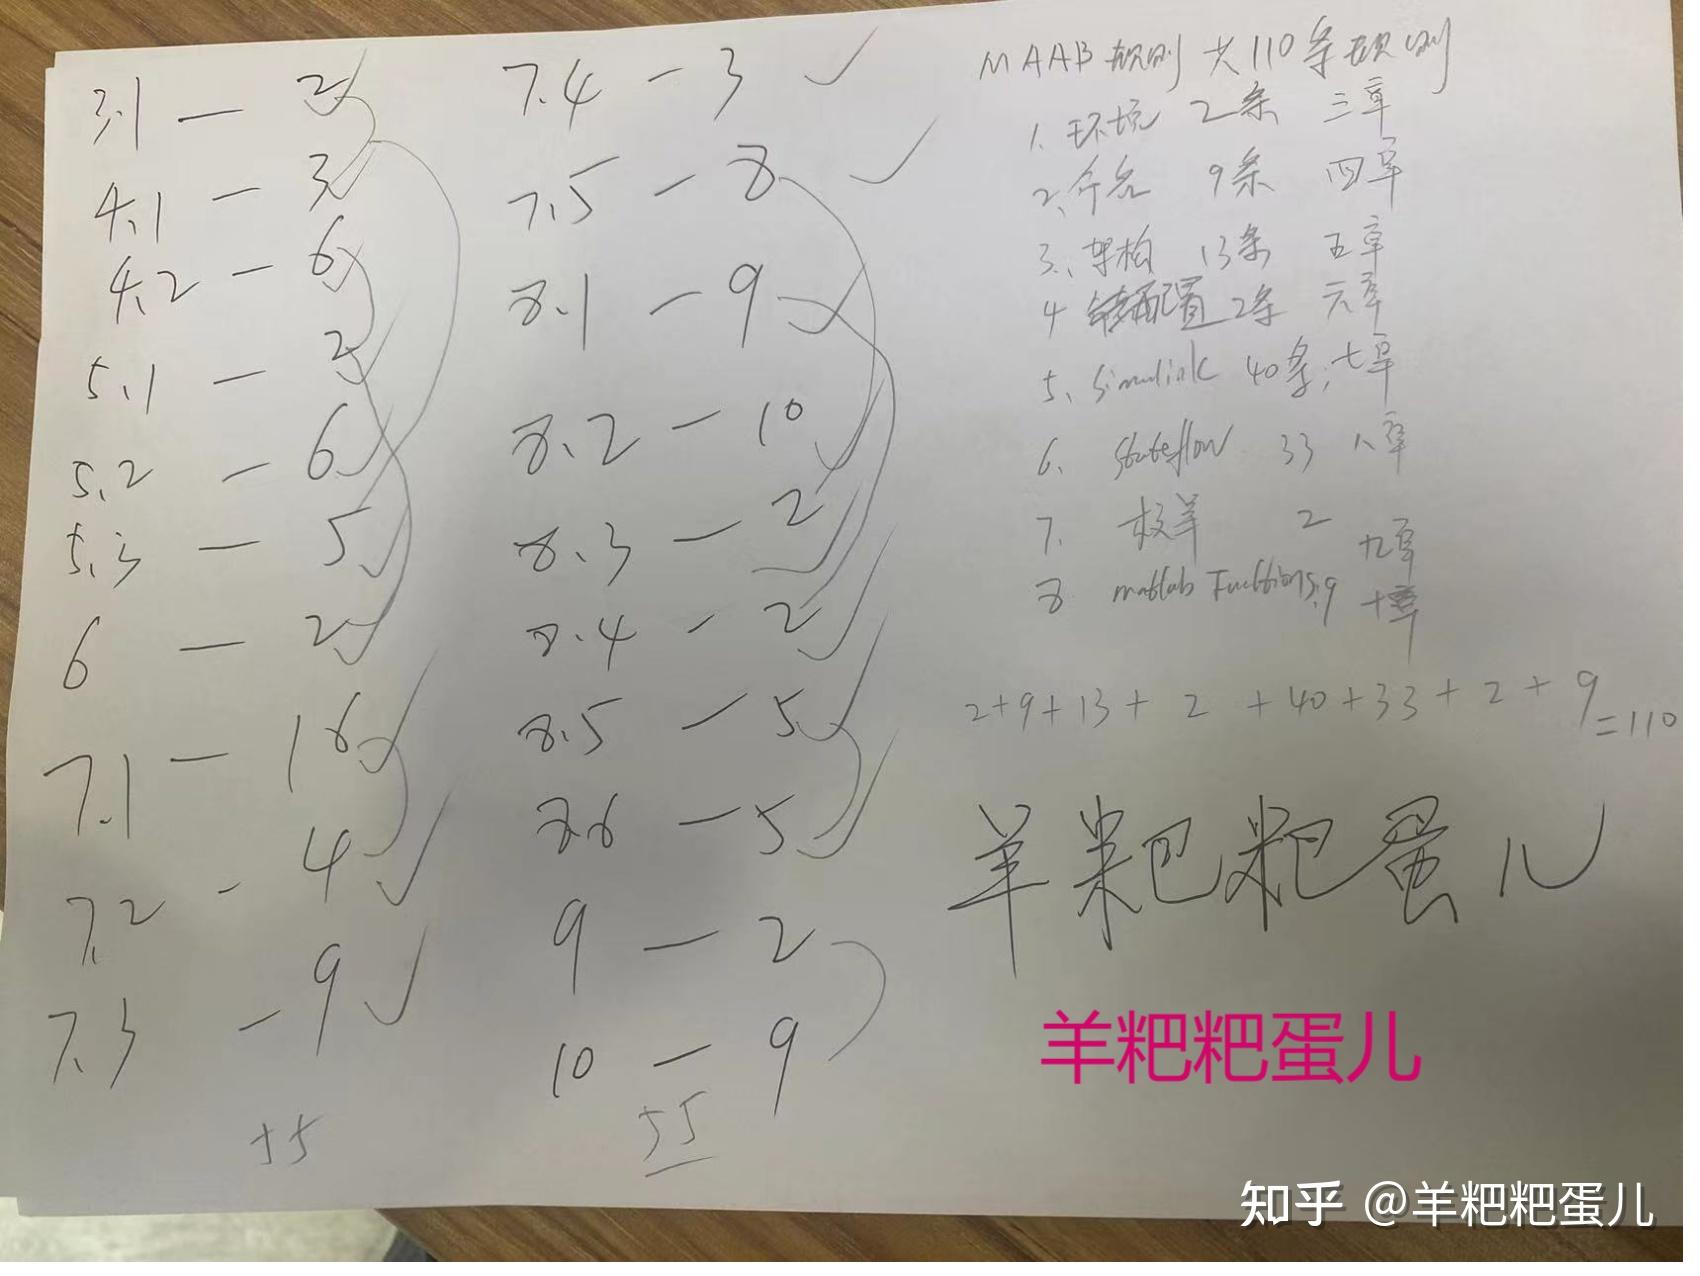 3.1 — 2
4.1 — 3
4.2 — 6
5.1 — 2
5.2 — 6
5.3 — 5
6 — 2
7.1 — 16
7.2 - 4
7.3 - 9
55
7.4 - 3
7.5 - 8
8.1 - 9
8.2 - 10
8.3 - 2
8.4 - 2
8.5 - 5
8.6 - 5
9 - 2
10 - 9
55
MAAB规则 共110条规则
1. 环境 2条 三章
2、命名 9条 四章
3、架构 13条 五章
4 配置 2条 六章
5、simulink 40条, 七章
6、 stateflow 33 八章
7. 2 九章
8 matlab Functions, 9 十章
2+9+13+ 2 +40+33+2+9
=110
羊粑粑蛋儿
羊粑粑蛋儿
知乎 @羊粑粑蛋儿